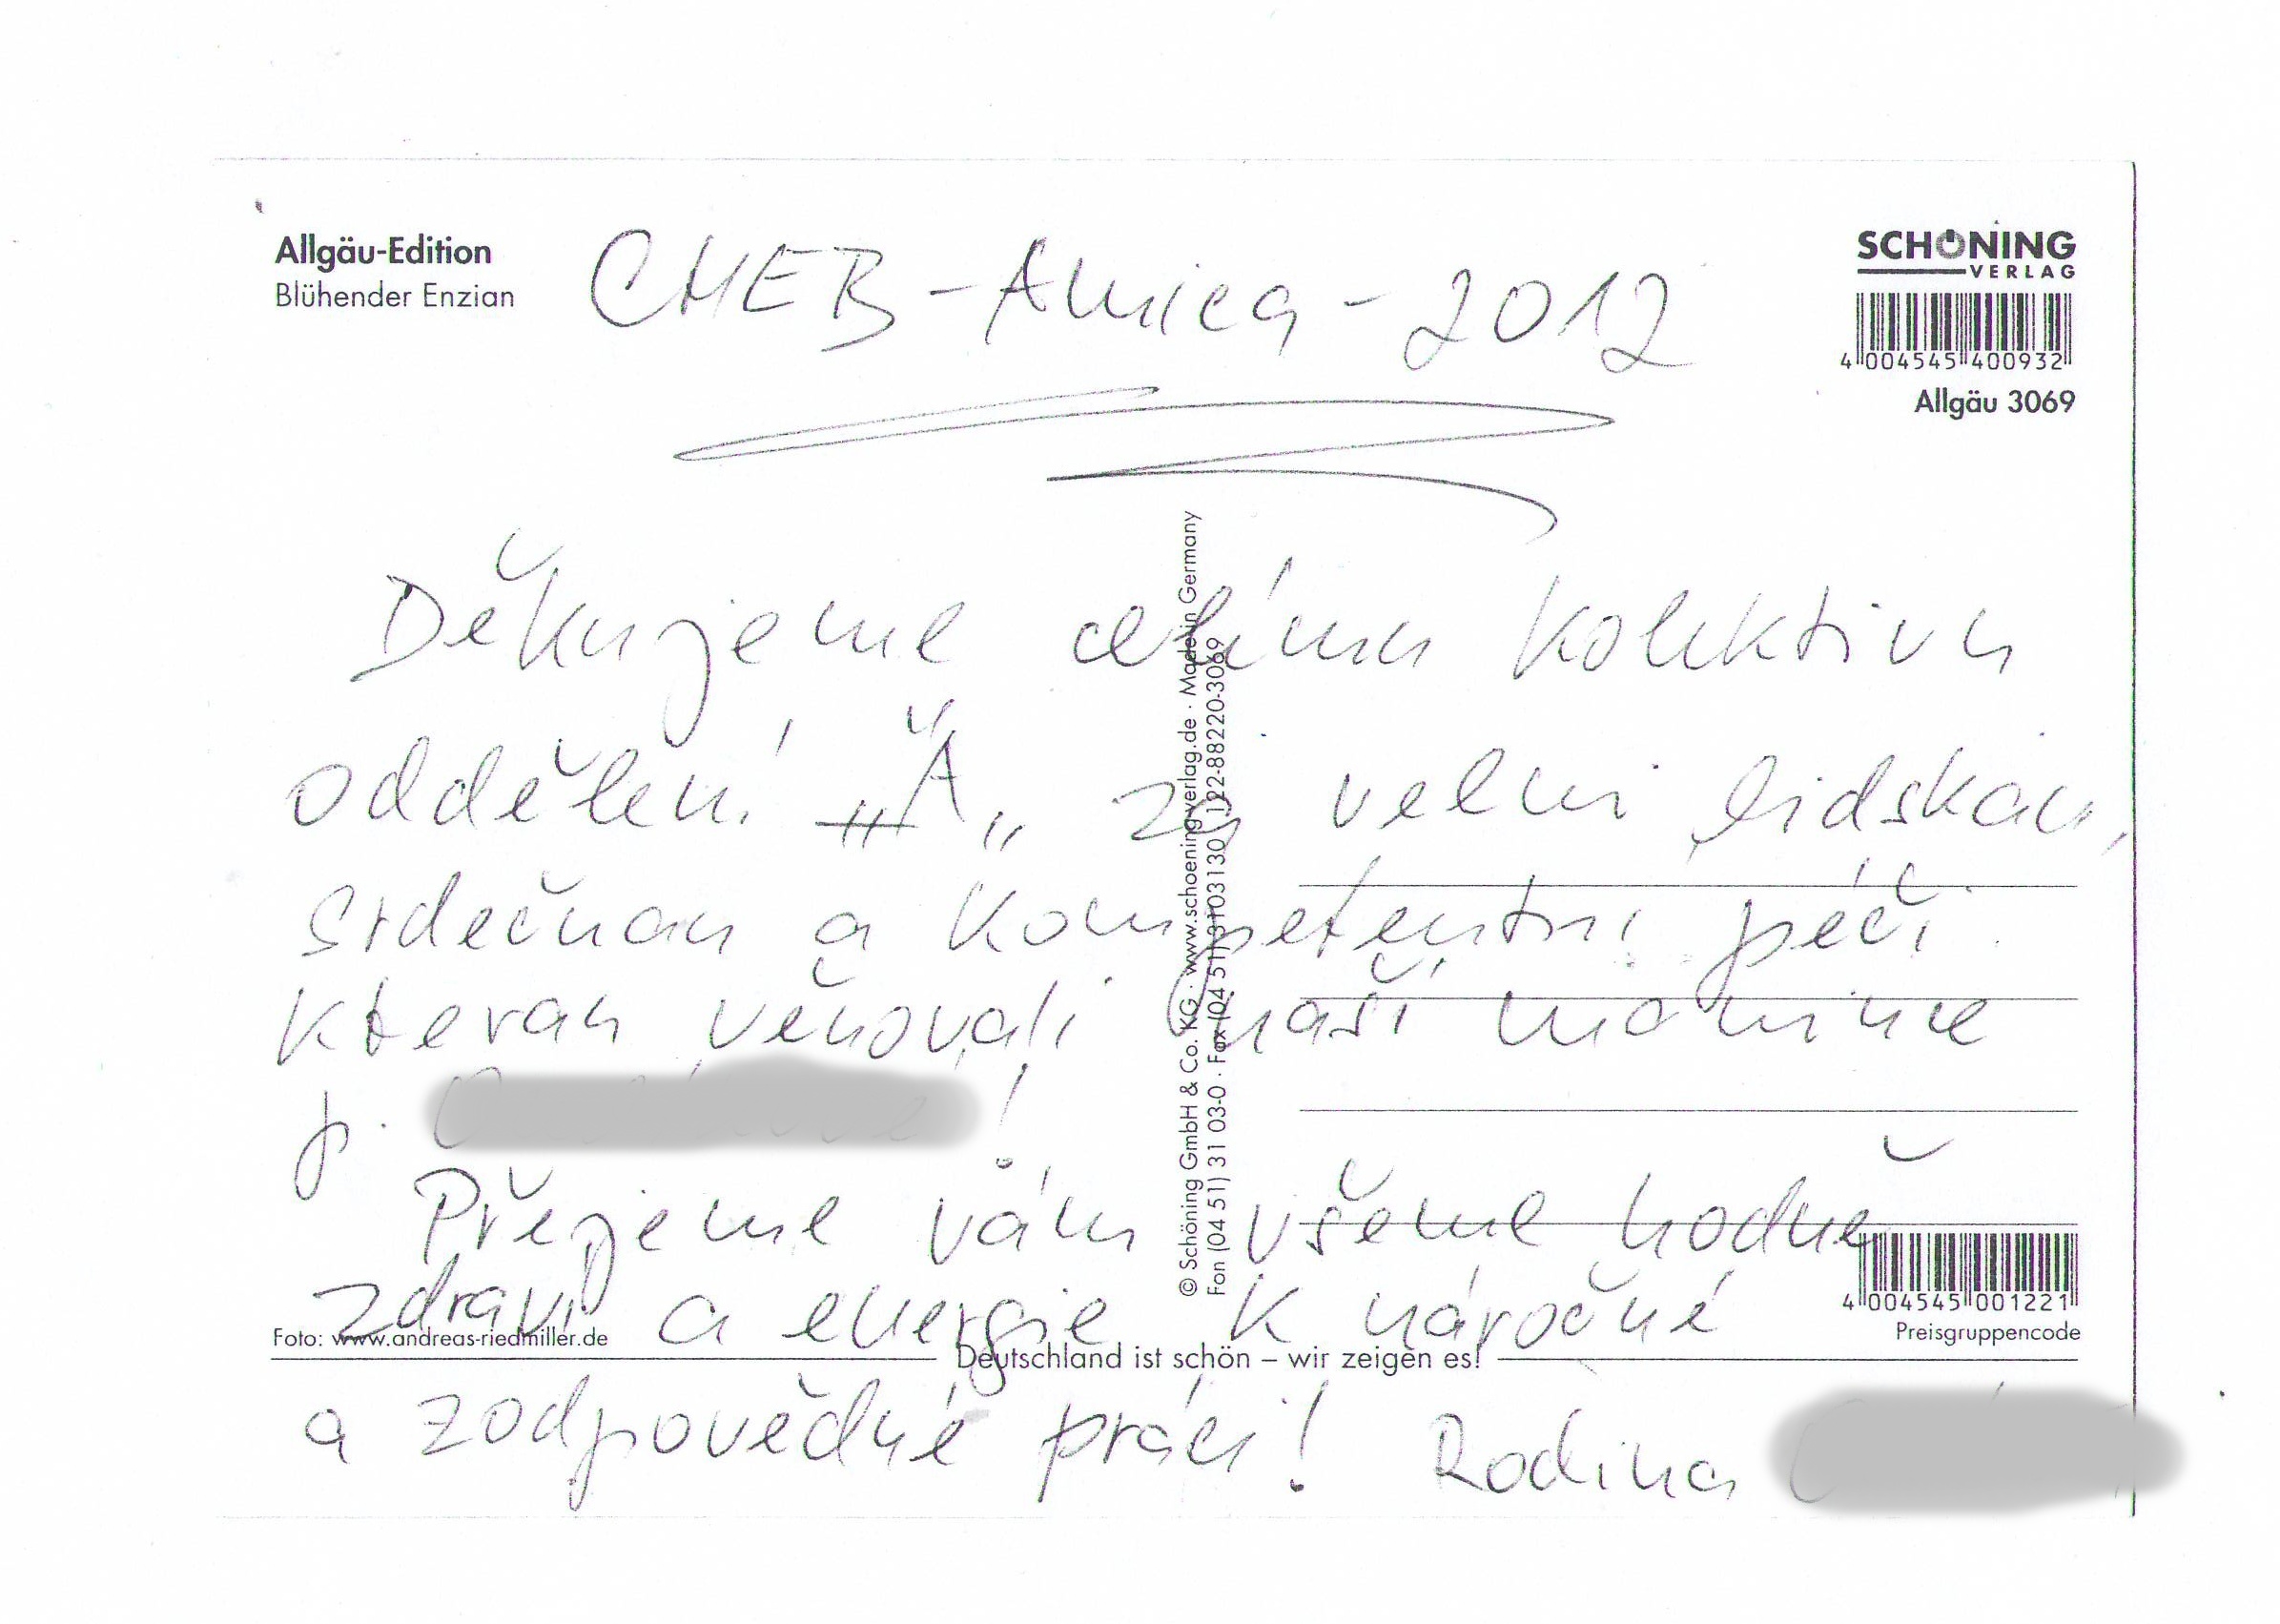 Allgäu-Edition
Blühender Enzian
CHEB - Amica - 2012
SCHÖNING
VERLAG
4 004545 400932
Allgäu 3069
Děkujeme celému kolektivu
oddělení „A„ za velmi lidskou,
srdečnou a kompetentní péči
kterou věnovali naší mamince
p. !
Přejeme vám všeme hodně
zdraví a energie k náročné
a zodpovědné práci! Rodina
© Schöning GmbH & Co. KG · www.schoeningverlag.de · Made in Germany
Fon (04 51) 31 03-0 · Fax (04 51) 3103130 122-88220-3069
4 004545 001221
Preisgruppencode
Foto: www.andreas-riedmiller.de
Deutschland ist schön – wir zeigen es!